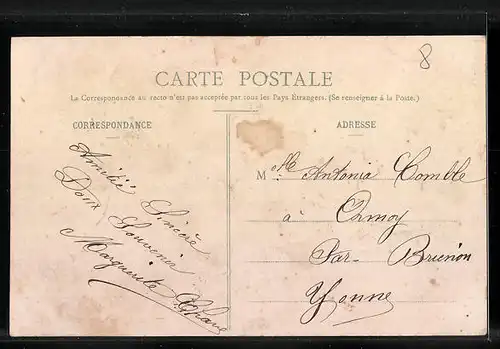 8
CARTE POSTALE
La Correspondance au recto n'est pas acceptée par tous les Pays Étrangers. (Se renseigner à la Poste.)
CORRESPONDANCE
ADRESSE
Amitié Sincère
Doux Souvenir
Marguerite
M lle Antonia Comble
à Ormoy
Par Brienon
Yonne